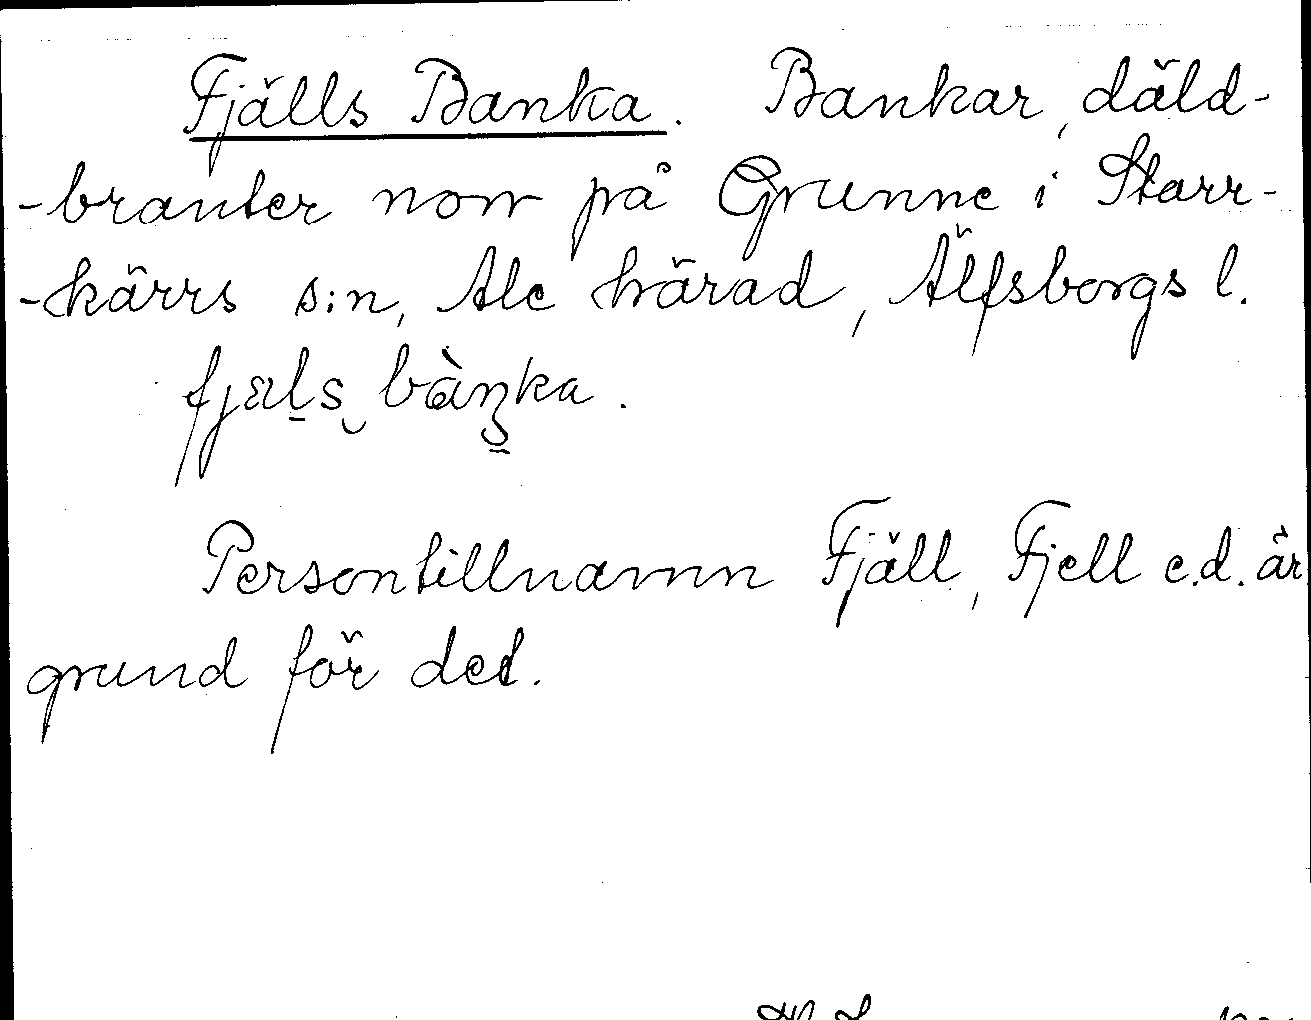 Fjälls Banka. Bankar, däld-
-branter norr på Grunne i Starr-
-kärrs s:n, Ale härad, Älfsborgs l.
fjäls bàŋka.
Persontillnamn Fjäll, Fjell e.d. är
grund för det.